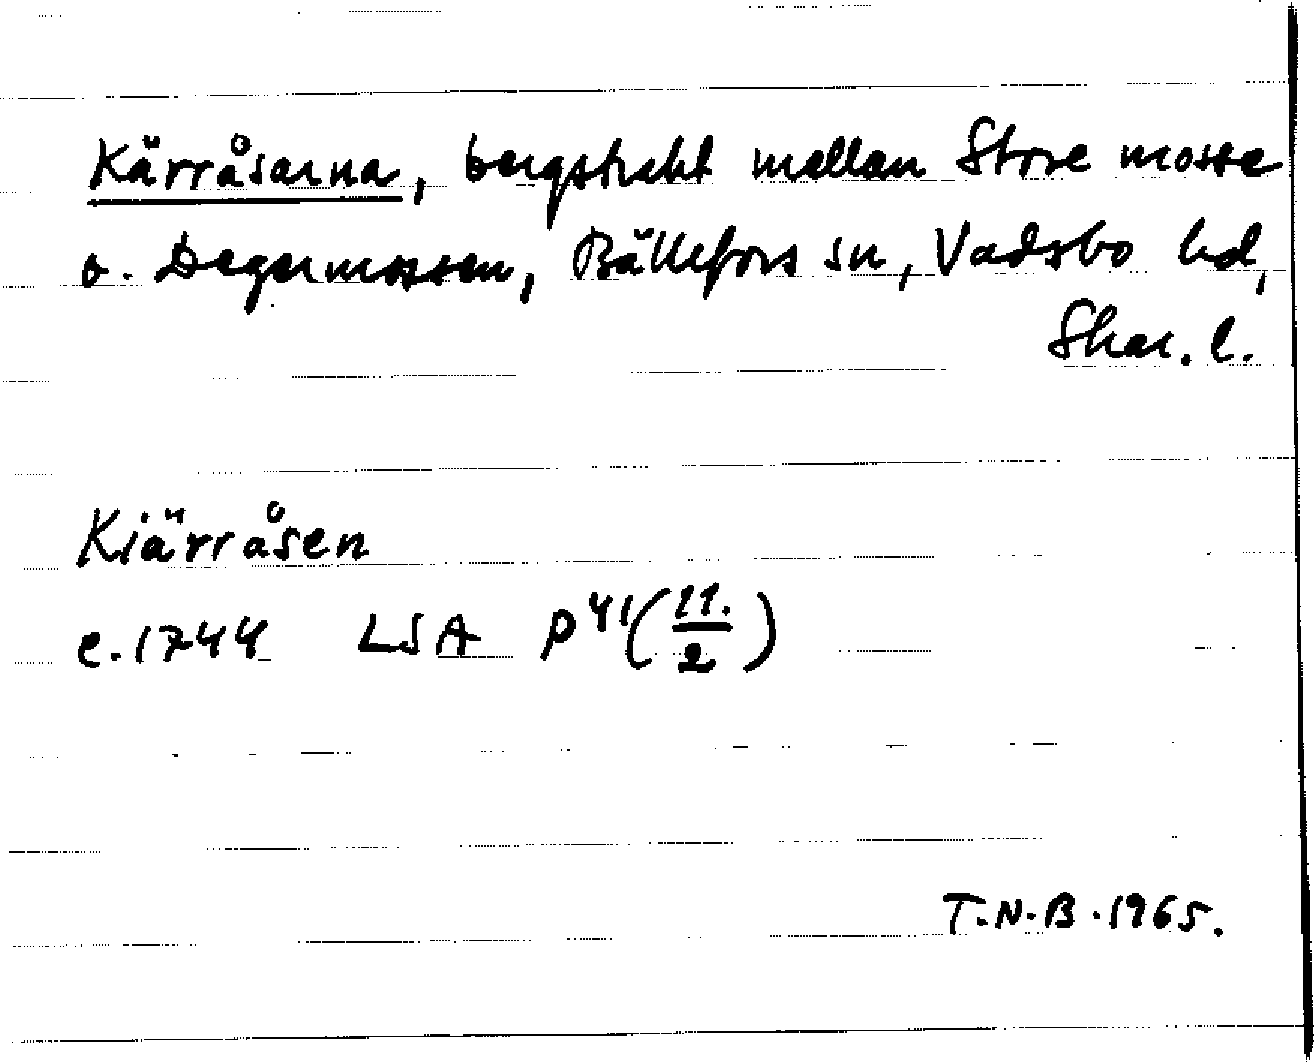 Kärråsarna, bergsträckt mellan Store mosse
o. Degermossen, Bällefors sn, Vadsbo hd,
Skar. l.
Kiärråsen
c. 1744 LSA P 41 (11./2)
T.N.B. 1965.